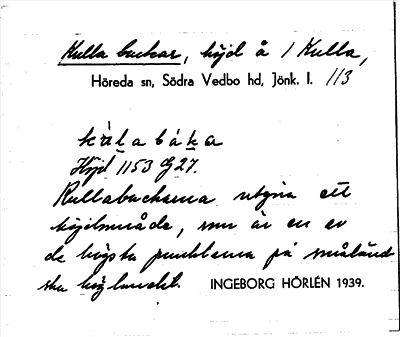 Kulla backar, höjd å 1 Kulla,
Höreda sn, Södra Vedbo hd, Jönk. l. 113
kálabáka
Höjd 1153 G 27.
Kullabackarna utgöra ett
höjdområde, som är en av
de högsta punkterna på småländ
ska höglandet. INGEBORG HÖRLÉN 1939.